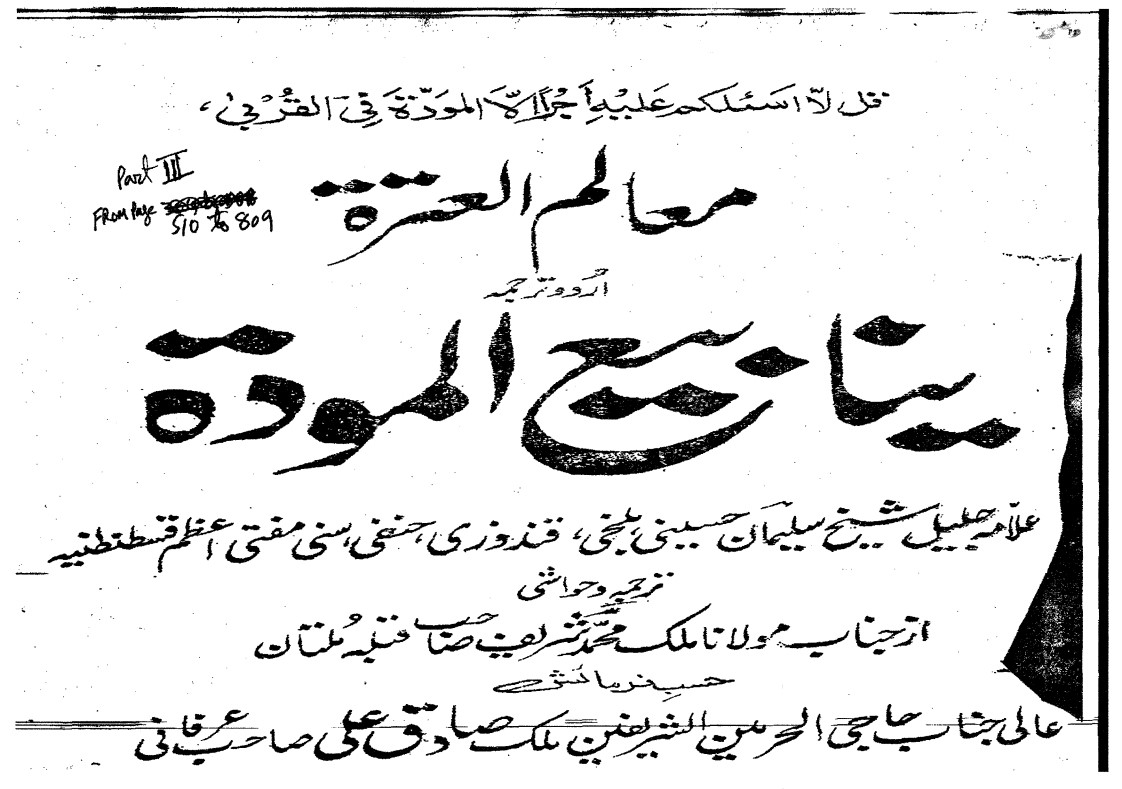 قل لّا اسَئلكم عَلَيْهِ أَجْرًا اِلَّا المَوَدَّةَ فِى القُرْبٰى،
Part III
From Page 510 to 809
معالم العترة
اُردو ترجمہ
ینابیع المودة
علّامہ جلیل شیخ سلیمان حسینی بلخی، قندوزی، حنفی سنی مفتی اعظم قسطنطنیہ
ترجمہ و حواشی
از جناب مولانا ملک محمّد شریف صاحب قبلہ مُلتان
حسبِ فرمائش
عالی جناب حاجی الحرمین الشریفین ملک صادق علی صاحب عرفانی